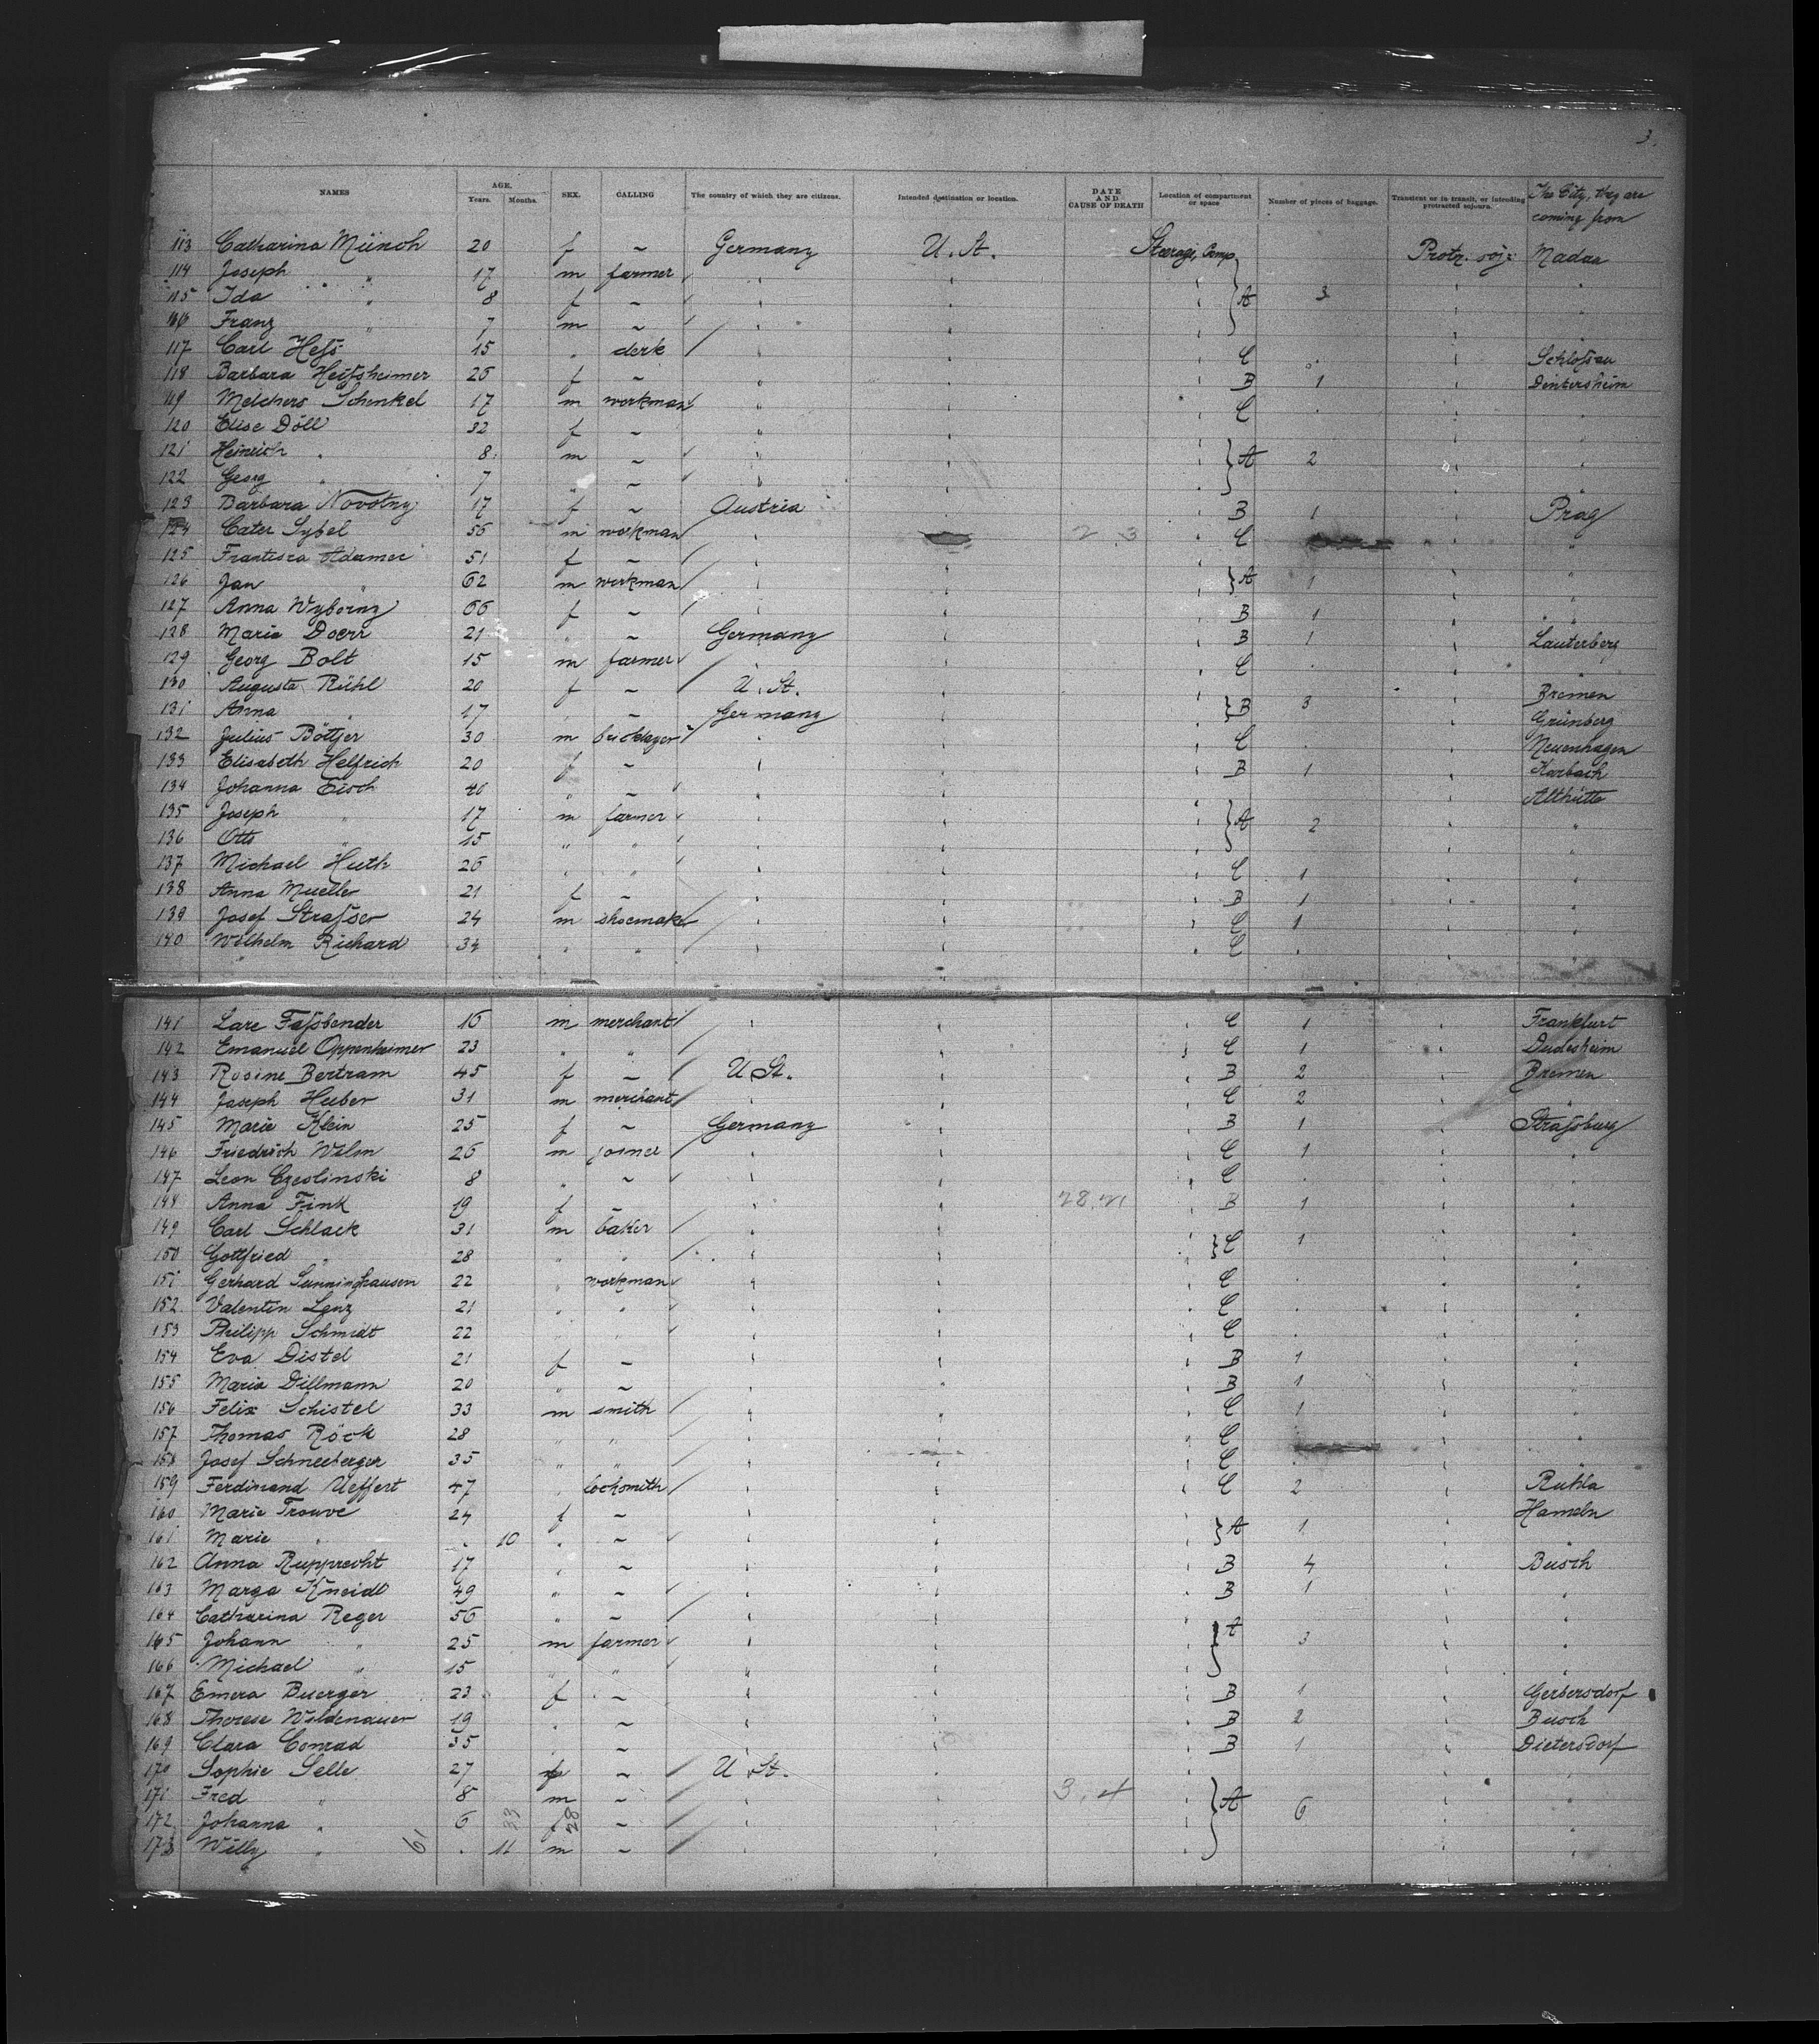 3.
NAMES AGE. Years. Months. SEX. CALLING The country of which they are citizens. Intended destination or location. DATE AND CAUSE OF DEATH Location of compartment or space Number of pieces of baggage. Transient or in transit, or intending protracted sojourn. The City, they are coming from
113 Catharina Münch 20 f ~ Germany U. St. Steerage, Comp Protr. soj: Madaa
114 Joseph " 17 m farmer
115 Ida " 8 f ~ A 3
116 Franz " 7 m ~
117 Carl Heſs 15 " clerk C Schloſsau
118 Barbara 26 f ~ B 1 Deintersheim
119 Melchers Schenkel 17 m workman C
120 Elise Döll 32 f ~
121 Heinrich " 8 m ~ A 2
122 Georg " 7 " ~
123 Barbara Novotny 17 f ~ Austria B 1 Prag
124 Cater Sybel 56 m workman " 2 3 C "
125 Adamec 51 f ~
126 Jan " 62 m workman A 1 "
127 Anna Wyborny 66 f ~ B 1 "
128 Maria Doerr 21 " ~ Germany B 1 Lauterberg
129 Georg Bolt 15 m farmer C
130 Augusta Rühl 20 f ~ U. St. Bremen
131 Anna " 17 " ~ Germany B 3 Grünberg
132 Julius Böttjer 30 m bricklayer C Neuenhagen
133 Elisabeth Helfrich 20 f ~ B 1 Karbach
134 Johanna Eisch 46 " ~ Althütte
135 Joseph " 17 m farmer A 2 "
136 Otto " 15 " "
137 Michael Huth 26 " " C 1
138 Anna Mueller 21 f ~ B 1
139 Josef Straſser 24 m shoemaker C 1
140 Wilhelm Richard 34 " " C
141 Lare Faſsbender 16 m merchant C 1 Frankfurt
142 Emanuel Oppenheimer 23 " " C 1 Dudesheim
143 Rosine Bertram 45 f ~ U. St. B 2 Bremen
144 Joseph Huber 31 m merchant C 2 "
145 Marie Klein 25 f ~ Germany B 1 Straſsburg
146 Friedrich Wilm 26 m joiner C 1 "
147 Leon Czeslinski 8 " ~ C
148 Anna Fink 19 f ~ 28.21 B 1
149 Carl Schlack 31 m baker C 1
150 Gottfried " 28 " "
151 Gerhard Sunninghausen 22 " workman C
152 Valentin Lenz 21 " " C
153 Philipp Schmidt 22 " " C
154 Eva Distel 21 f ~ B 1
155 Maria Dillmann 20 " ~ B 1
156 Felix Schistel 33 m smith C 1
157 Thomas Röck 28 " " C
158 Josef Schneeberger 35 " " C
159 Ferdinand Ueffert 47 " locksmith C 2 Ruhla
160 Marie Trouve 24 f ~ Hameln
161 Marie " . 10 " ~ A 1 "
162 Anna Rupprecht 17 " ~ B 4 Busch
163 Marga Kneidl 49 " ~ B 1
164 Catharina Reger 56 " ~
165 Johann " 25 m farmer A 3
166 Michael " 15 " "
167 Emera Buerger 23 f ~ B 1 Gerbersdorf
168 Therese Wildenauer 19 " ~ B 2 Busch
169 Clara Conrad 35 " ~ B 1 Dietersdorf
170 Sophie Selle 27 f ~ U. St.
171 Fred " 8 m ~ 3.4 A 6
172 Johanna " 6 33 f 28 ~
173 Willy " 61 . 11 m ~